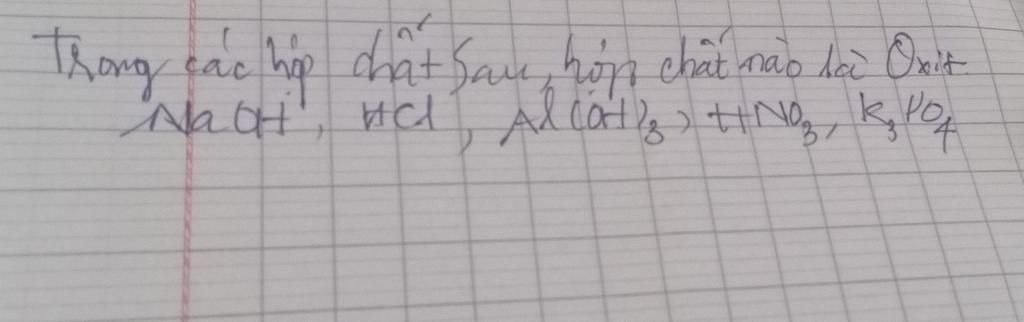 Trong các hợp chất sau, hợp chất nào là Oxit
NaOH, HCl, Al(OH)3, HNO3, K3PO4